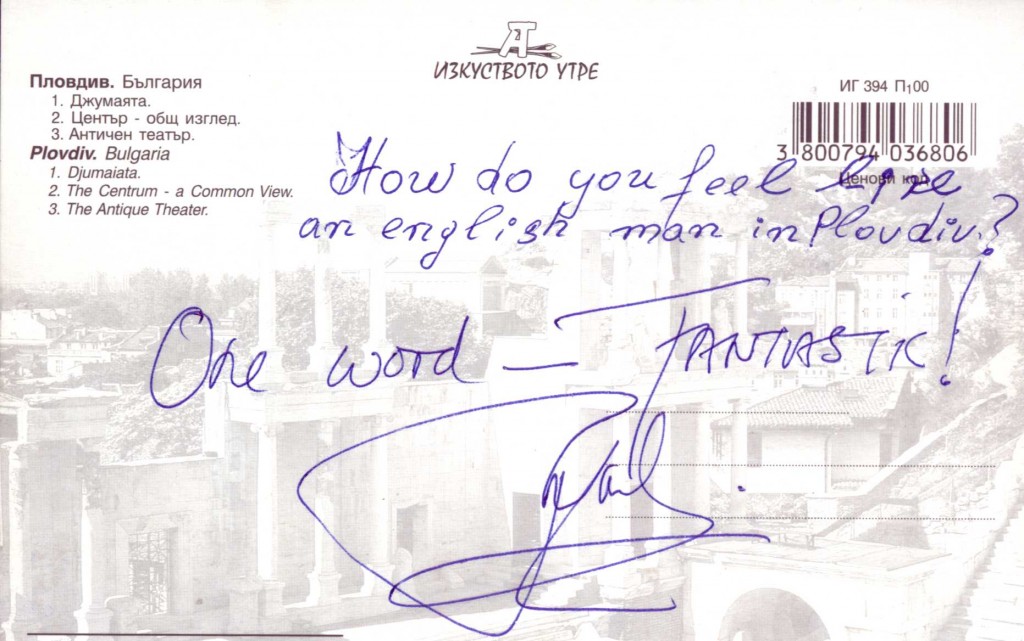 ИЗКУСТВОТО УТРЕ
Пловдив. България
1. Джумаята.
2. Център - общ изглед.
3. Античен театър.
Plovdiv. Bulgaria
1. Djumaiata.
2. The Centrum - a Common View.
3. The Antique Theater.
ИГ 394 П100
3 800794 036806
Ценови код
How do you feel like
an english man in Plovdiv?
One word – FANTASTIK!